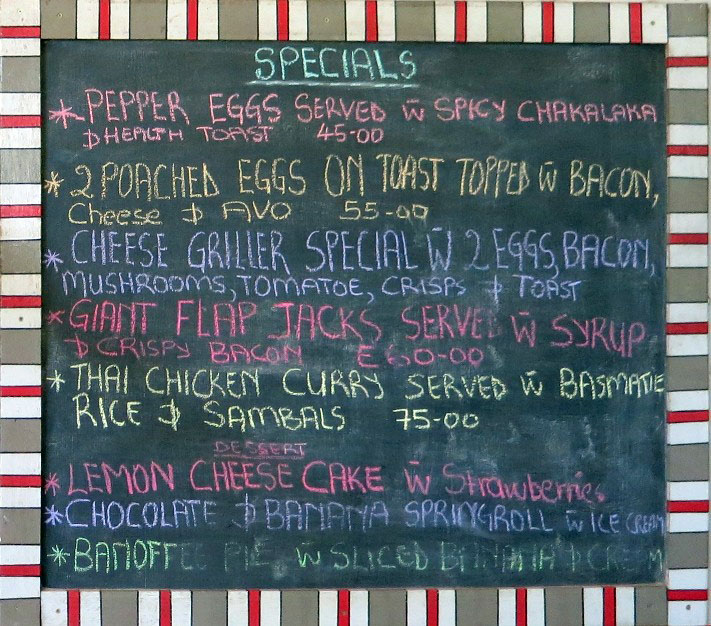 SPECIALS
* PEPPER EGGS SERVED w̄ SPICY CHAKALAKA
& HEALTH TOAST 45-00
* 2 POACHED EGGS ON TOAST TOPPED w̄ BACON,
Cheese & AVO 55-00
* CHEESE GRILLER SPECIAL w̄ 2 EGGS, BACON,
MUSHROOMS, TOMATOE, CRISPS & TOAST
* GIANT FLAP JACKS SERVED w̄ SYRUP
& CRISPY BACON E60-00
* THAI CHICKEN CURRY SERVED w̄ BASMATIE
RICE & SAMBALS 75-00
DESSERT
* LEMON CHEESE CAKE w̄ Strawberries
* CHOCOLATE & BANANA SPRINGROLL w̄ ICE CREAM
* BANOFFEE PIE w̄ SLICED BANANA & CREAM